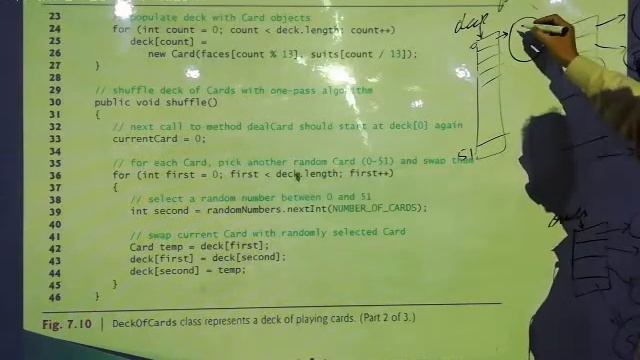 23 // populate deck with Card objects
24 for (int count = 0; count < deck.length; count++)
25 deck[count] =
26 new Card(faces[count % 13], suits[count / 13]);
27 }
28
29 // shuffle deck of Cards with one-pass algorithm
30 public void shuffle()
31 {
32 // next call to method dealCard should start at deck[0] again
33 currentCard = 0;
34
35 // for each Card, pick another random Card (0-51) and swap them
36 for (int first = 0; first < deck.length; first++)
37 {
38 // select a random number between 0 and 51
39 int second = randomNumbers.nextInt(NUMBER_OF_CARDS);
40
41 // swap current Card with randomly selected Card
42 Card temp = deck[first];
43 deck[first] = deck[second];
44 deck[second] = temp;
45 }
46 }
Fig. 7.10 | DeckOfCards class represents a deck of playing cards. (Part 2 of 3.)
deck
0
51